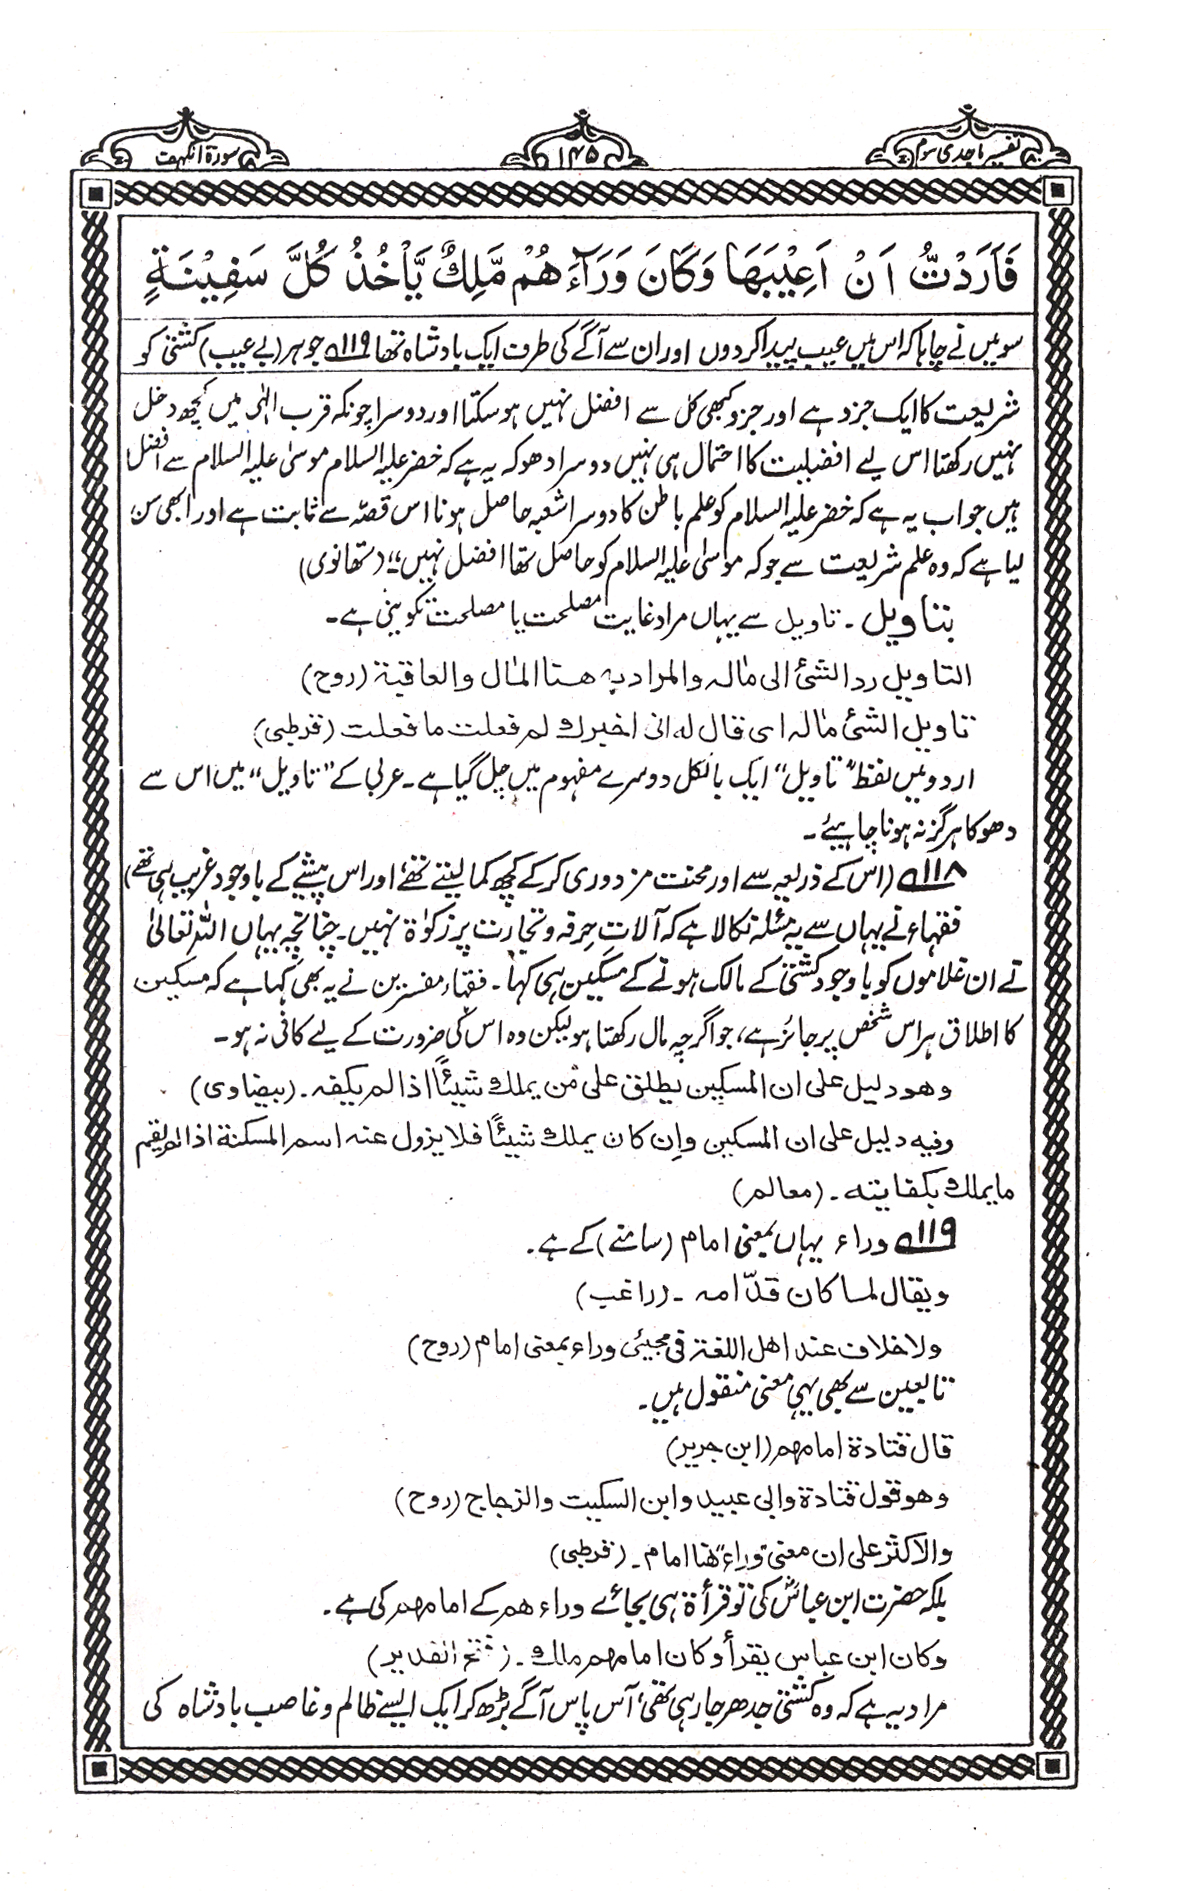 تفسیر ماجدی سوم
۱۴۵
سورۃ الکہف
فَاَرَدْتُّ اَنْ اَعِیْبَهَا وَکَانَ وَرَآءَ هُمْ مَّلِكٌ یَّاْخُذُ کُلَّ سَفِیْنَةٍ
سو میں نے چاہا کہ اس میں عیب پیدا کردوں اور ان سے آگے کی طرف ایک بادشاہ تھا ۱۱۹؎ جو ہر (بے عیب) کشتی کو
شریعت کا ایک جزد ہے اور جزو کبھی کل سے افضل نہیں ہوسکتا اور دوسرا چونکہ قرب الٰہی میں کچھ دخل
نہیں رکھتا اس لیے افضلیت کا احتمال ہی نہیں دوسرا دھوکہ یہ ہے کہ خضر علیہ السلام موسیٰ علیہ السلام سے افضل
ہیں جواب یہ ہے کہ خضر علیہ السلام کو علم باطن کا دوسرا شعبہ حاصل ہونا اس قصّہ سے ثابت ہے اور ابھی سن
لیا ہے کہ وہ علم شریعت سے جو کہ موسیٰ علیہ السلام کو حاصل تھا افضل نہیں" (تھانوی)
بتاویل ۔ تاویل سے یہاں مراد غایت مصلحت یا مصلحت تکوینی ہے۔
التاویل رد الشئ الی مٰاله والمراد به هنا المٰال والعاقبة (روح)
تاویل الشئ مٰاله ای قال له انی اخبرك لم فعلت ما فعلت (قرطبی)
اردو میں لفظ "تاویل" ایک بالکل دوسرے مفہوم میں چل گیا ہے۔ عربی کے "تاویل" میں اس سے
دھوکا ہرگز نہ ہونا چاہیئے۔
۱۱۸؎ (اس کے ذریعہ سے اور محنت مزدوری کرکے کچھ کما لیتے تھے اور اس پیشے کے باوجود غریب ہی تھے)
فقہاء نے یہاں سے یہ مسئلہ نکالا ہے کہ آلاتِ حرفہ و تجارت پر زکوٰۃ نہیں۔ چنانچہ یہاں اللہ تعالیٰ
نے ان غلاموں کو باوجود کشتی کے مالک ہونے کے مسکین ہی کہا۔ فقہاء مفسرین نے یہ بھی کہا ہے کہ مسکین
کا اطلاق ہر اس شخص پر جائز ہے، جو اگرچہ مال رکھتا ہو لیکن وہ اس کی ضرورت کے لیے کافی نہ ہو۔
وهو دلیل علی ان المسکین یطلق علی من یملك شیئًا اذا لم یکفه۔ (بیضاوی)
وفیه دلیل علی ان المسکین وإن کان یملك شیئًا فلا یزول عنه اسم المسکنة اذا لم یقم
ما یملك بکفایته۔ (معالم)
۱۱۹؎ وراء یہاں بمعنی امام (سامنے) کے ہے۔
ویقال لما کان قدّامه ۔ (راغب)
ولا خلاف عند اهل اللغة فی مجیئ وراء بمعنی امام (روح)
تابعین سے بھی یہی معنی منقول ہیں۔
قال قتادة امامهم (ابن جریر)
وهو قول قتادة وابی عبید وابن السکیت والزجاج (روح)
والاکثر علی ان معنی "وراء" هنا امام۔ (قرطبی)
بلکہ حضرت ابن عباسؓ کی تو قرأۃ ہی بجائے وراء هم کے امامهم کی ہے۔
وکان ابن عباس یقرأ وکان امامهم ملك۔ (فتح القدیر)
مراد یہ ہے کہ وہ کشتی جدھر جارہی تھی، آس پاس آگے بڑھ کر ایک ایسے ظالم و غاصب بادشاہ کی